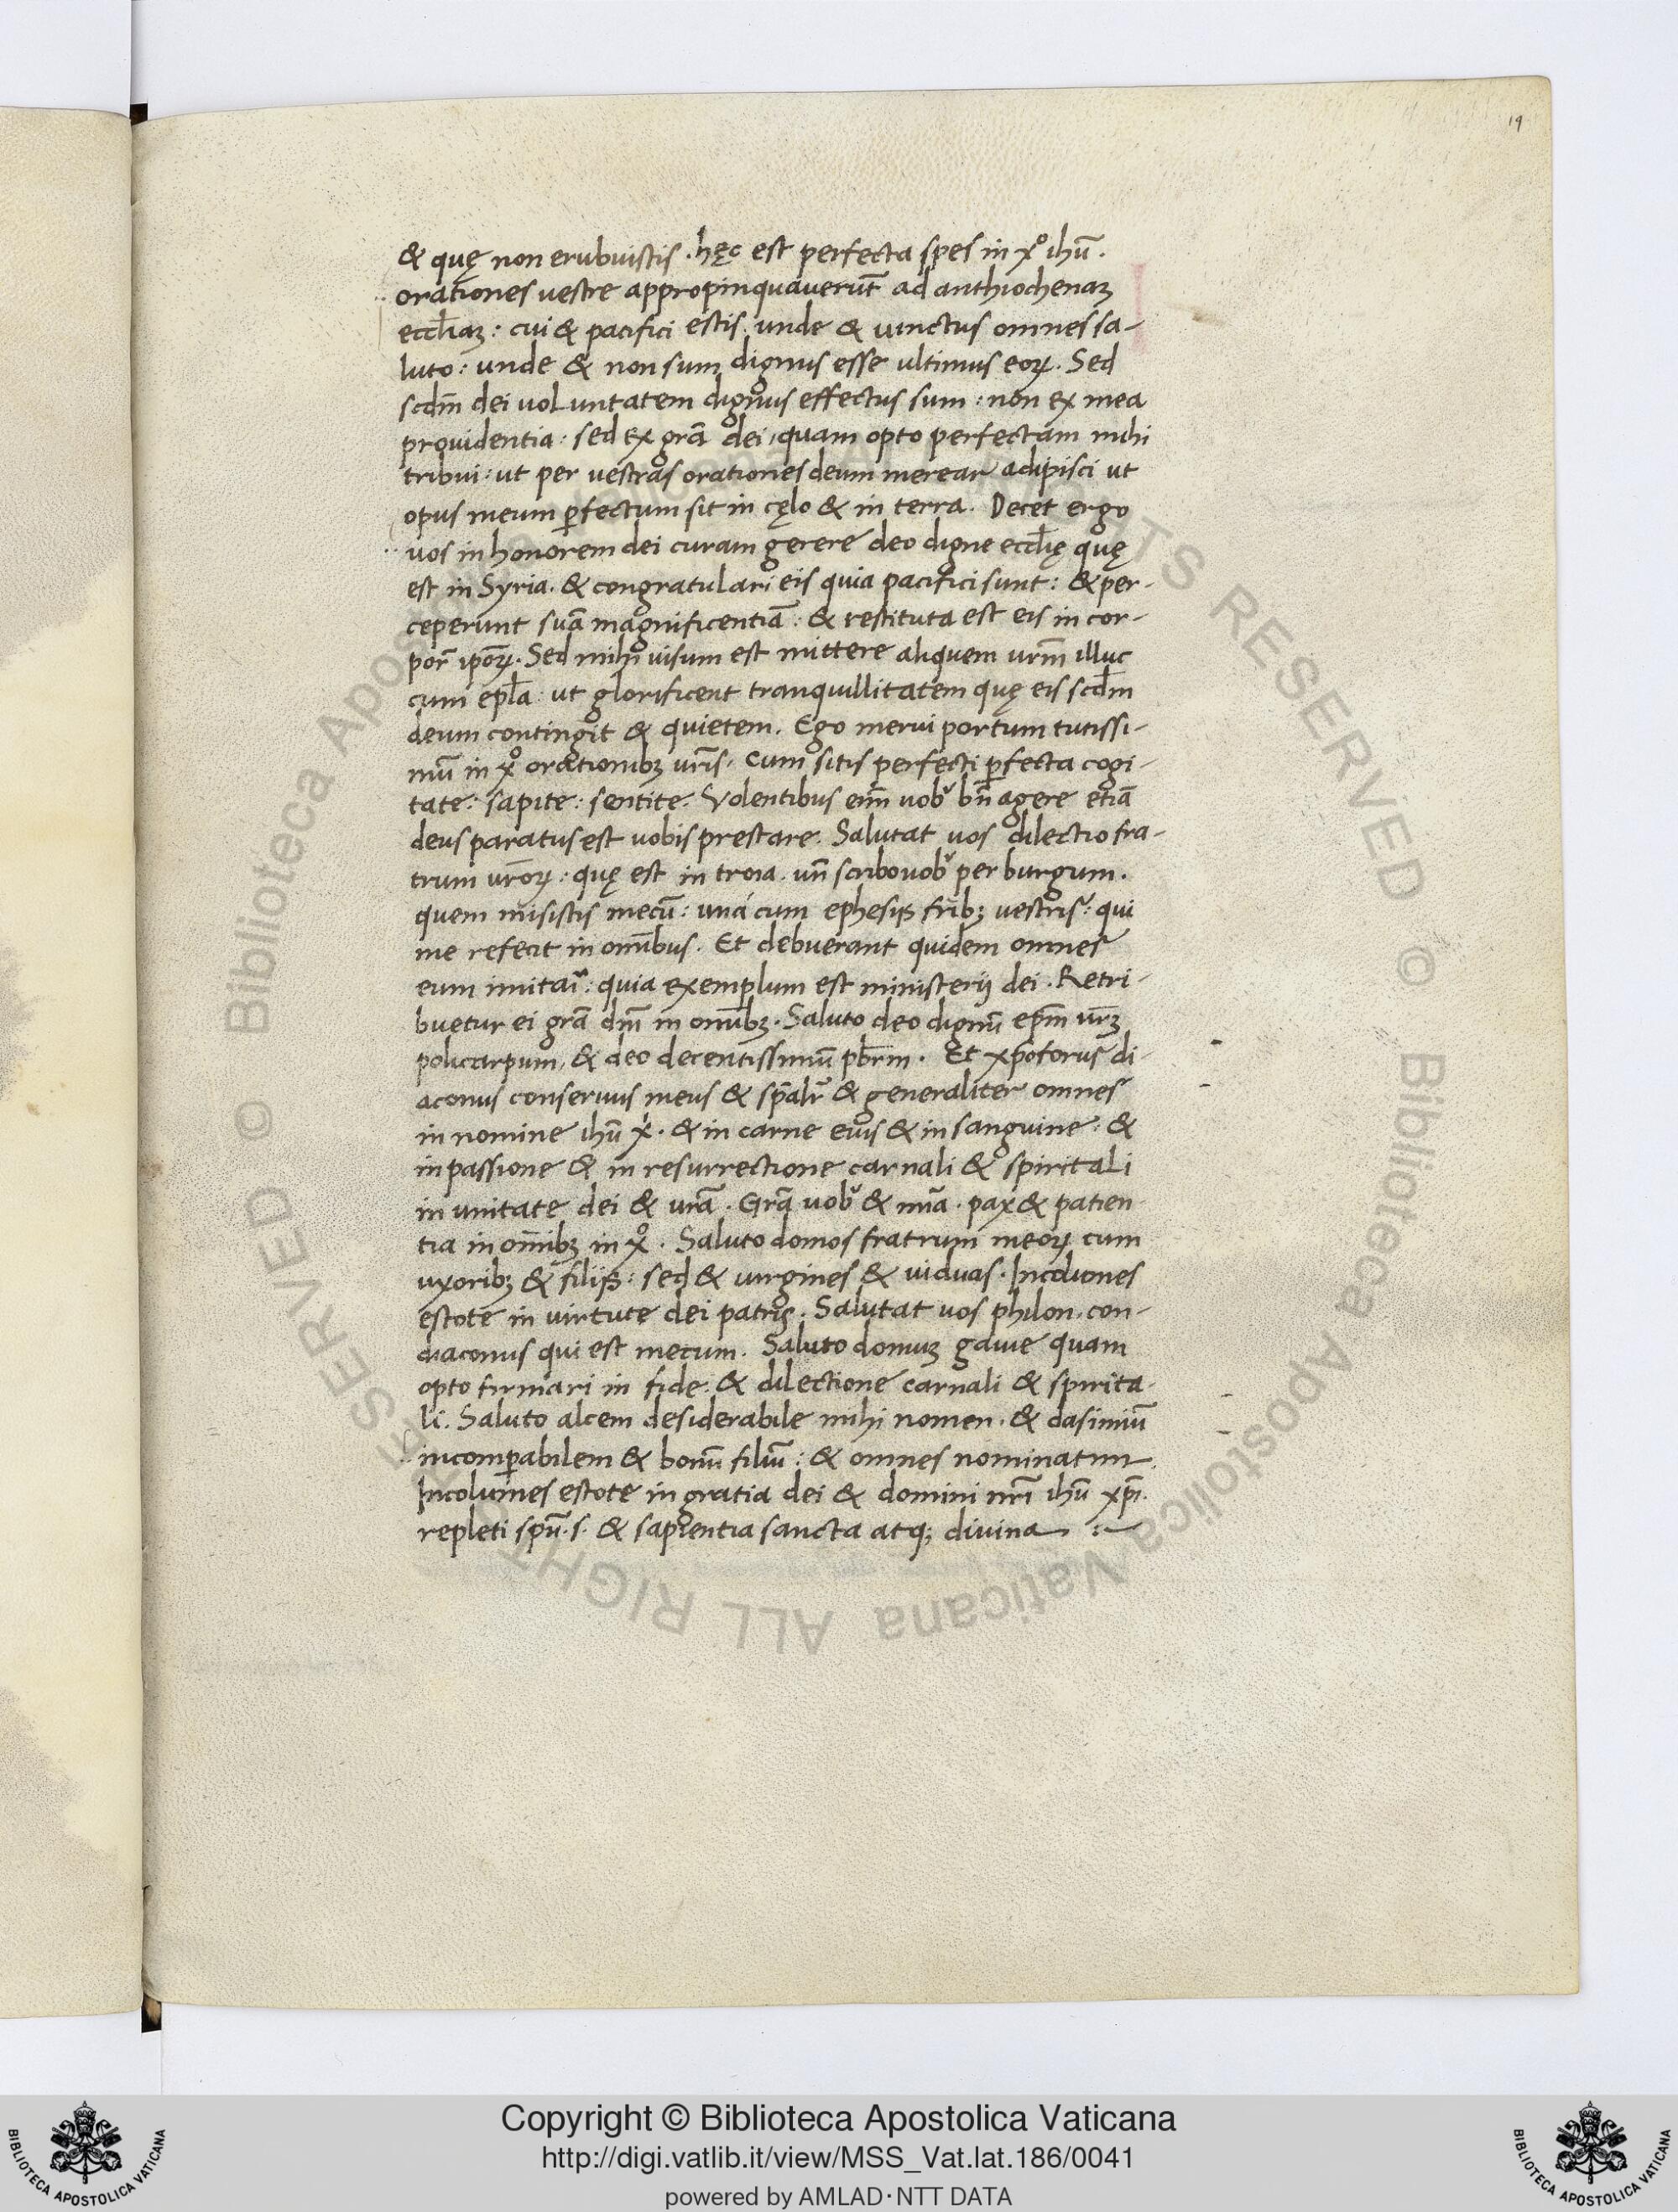 19
& quę non erubuistis. hęc est perfecta spes in xº ihū.
orationes uestre appropinquauerūt ad anthiochenaꝫ
eccl̄iaꝫ: cui & pacifici estis. unde & uinctus omnes sa-
luto: unde & non sum dignus esse ultimus eoꝝ. Sed
scdm̄ dei uoluntatem dignus effectus sum: non ex mea
prouidentia: sed ex grā dei, quam opto perfectam mihi
tribui: ut per uestras orationes deum merear adipisci ut
opus meum ꝑfectum sit in cęlo & in terra. Decet ergo
uos in honorem dei curam gerere deo digne eccl̄ię quę
est in Syria. & congratulari eis quia pacifici sunt: & per-
ceperunt suā magnificentiā: & restituta est eis in cor-
por̄ ip̄oꝝ. Sed mihi uisum est mittere aliquem ur̄m illuc
cum epl̄a: ut glorificent tranquillitatem quę eis scd̄m
deum contingit & quietem. Ego merui portum tutissi-
mū in xº orationibꝫ ur̄is. Cum sitis perfecti ꝑfecta cogi-
tate: sapite: sentite. Volentibus eni̅m uob᾽ bn̄ agere etiā
deus paratus est uobis prestare. Salutat uos dilectio fra-
trum ur̄oꝝ: quę est in troia. un̄ scribo uob᾽ per burgum.
quem misistis mecū: una cum ephesijs fr̄ibꝫ uestris: qui
me refecit in omībus. Et debuerant quidem omnes
eum imitari: quia exemplum est ministerij dei. Retri-
buetur ei grā dn̄i in omībꝫ. Saluto deo dignū ep̄m ur̄ꝫ
policarpum, & deo decentissimū pb̄rm. Et xp̄oforus di-
aconus conseruus meus & sp̄alr̄ & generaliter omnes
in nomine ihū x̓. & in carne eius & in sanguine: &
in passione & in resurrectione carnali & spiritali
in unitate dei & ur̄a. Grā uob᾽ & mīa. pax & patien
tia in omībꝫ in xº. Saluto domos fratrum meoꝝ cum
uxoribꝫ & filijs: sed & uirgines & uiduas. Incolumes
estote in uirtute dei patris. Salutat uos philon, con-
diaconus qui est mecum. Saluto domuꝫ gauie quam
opto firmari in fide. & dilectione carnali & spirita-
li. Saluto alcem desiderabile mihi nomen. & dasimiū
incomꝑabilem & bonū filiū: & omnes nominatim.
Incolumes estote in gratia dei & domini nr̄i ihū xp̄i.
repleti spū. s. & sapientia sancta atqꝫ diuina
© Biblioteca Apostolica Vaticana ALL RIGHTS RESERVED
© Biblioteca Apostolica Vaticana ALL RIGHTS RESERVED
BIBLIOTECA APOSTOLICA VATICANA
Copyright © Biblioteca Apostolica Vaticana
http://digi.vatlib.it/view/MSS_Vat.lat.186/0041
powered by AMLAD·NTT DATA
BIBLIOTECA APOSTOLICA VATICANA